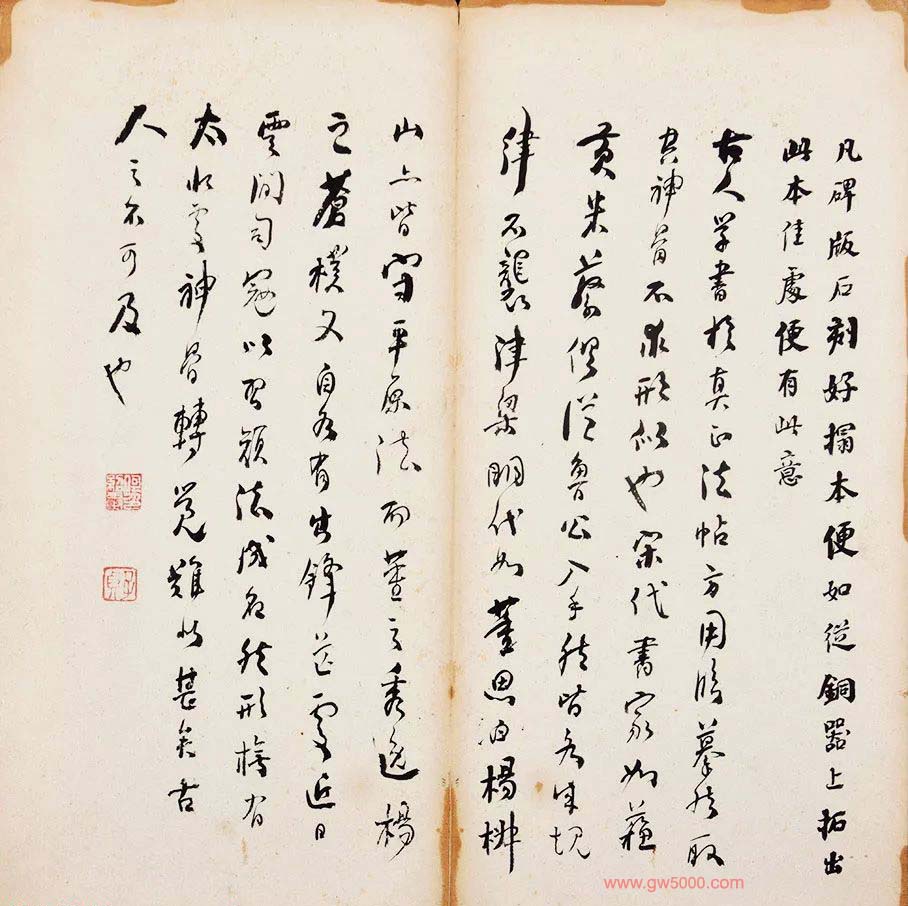 凡碑版石刻好搨本便如從銅器上拓出
此本佳處便有此意
古人學書於真正法帖方用臨摹然取
其神骨不求形似也宋代書家如蘇
黃米蔡俱從魯公入手然皆各成規
律不襲津梁明代如董思白楊椒
山亦皆守平原法而董之秀逸楊
之蒼樸又自各有出鋒芒處近日
雲間司寇以習顏法成名然形模有
太似處神骨轉覺難似甚矣古
人之不可及也
子貞
www.gw5000.com